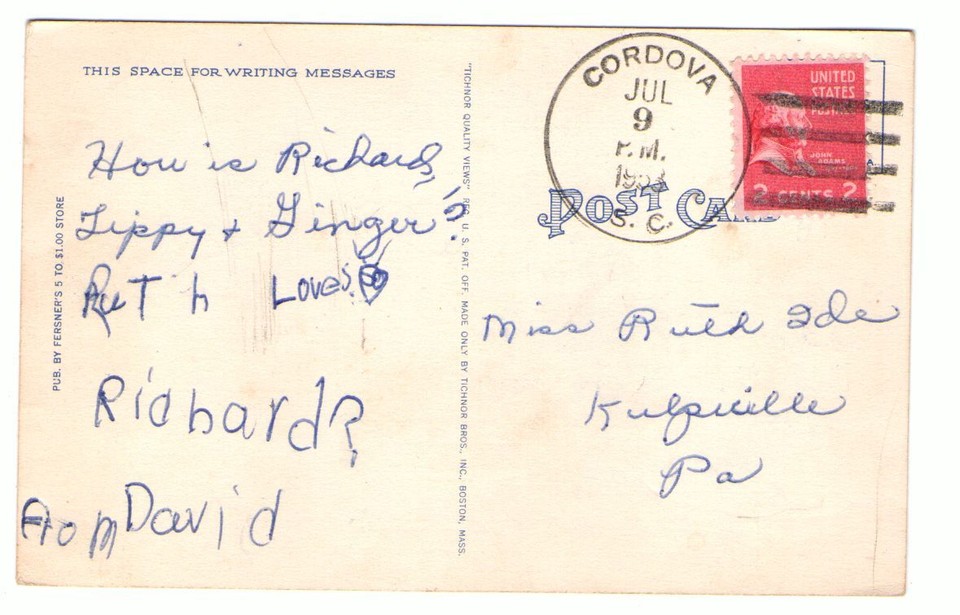 THIS SPACE FOR WRITING MESSAGES
How is Richard,
Tippy & Ginger?
Ruth Loves
Richard?
From David
PUB. BY FERSNER'S 5 TO $1.00 STORE
"TICHNOR QUALITY VIEWS" REG. U. S. PAT. OFF. MADE ONLY BY TICHNOR BROS., INC., BOSTON, MASS.
CORDOVA
JUL
9
P.M.
S. C.
UNITED
STATES
POSTAGE
JOHN
ADAMS
2 CENTS 2
POST CARD
Miss Ruth Ide
Kulpsville
Pa